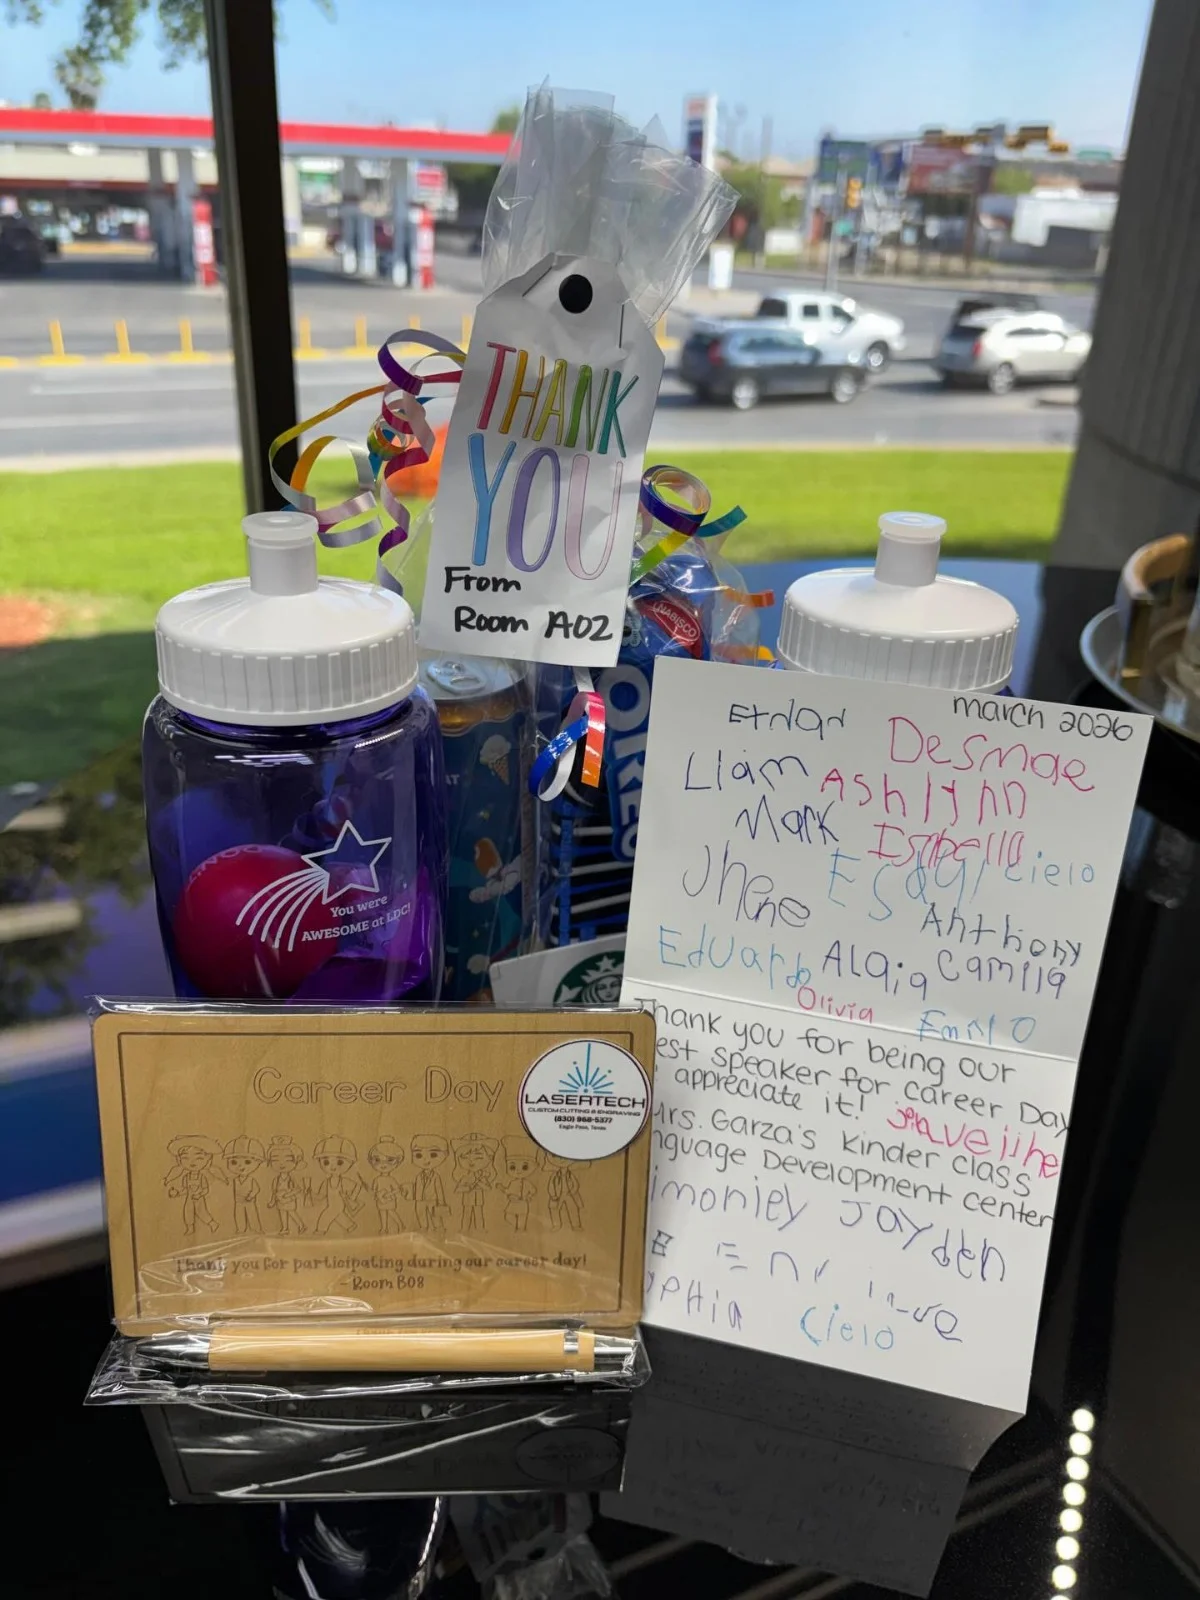 THANK
YOU
From
Room A02
NABISCO
OREO
You were
AWESOME at LDC!
march 2026
Ethan Desmae
Lliam Ashlynn
Mark Isabella
Jhene Esaql cielo
Anthony
Eduardo Alaia Camila
Olivia Emilio
Thank you for being our
est speaker for career Day
appreciate it!
Mrs. Garza's Kinder class
nguage Development center
Jayden
cielo
Career Day
LASERTECH
CUSTOM CUTTING & ENGRAVING
(830) 968-5377
Eagle Pass, Texas
Thank you for participating during our career day!
- Room B08